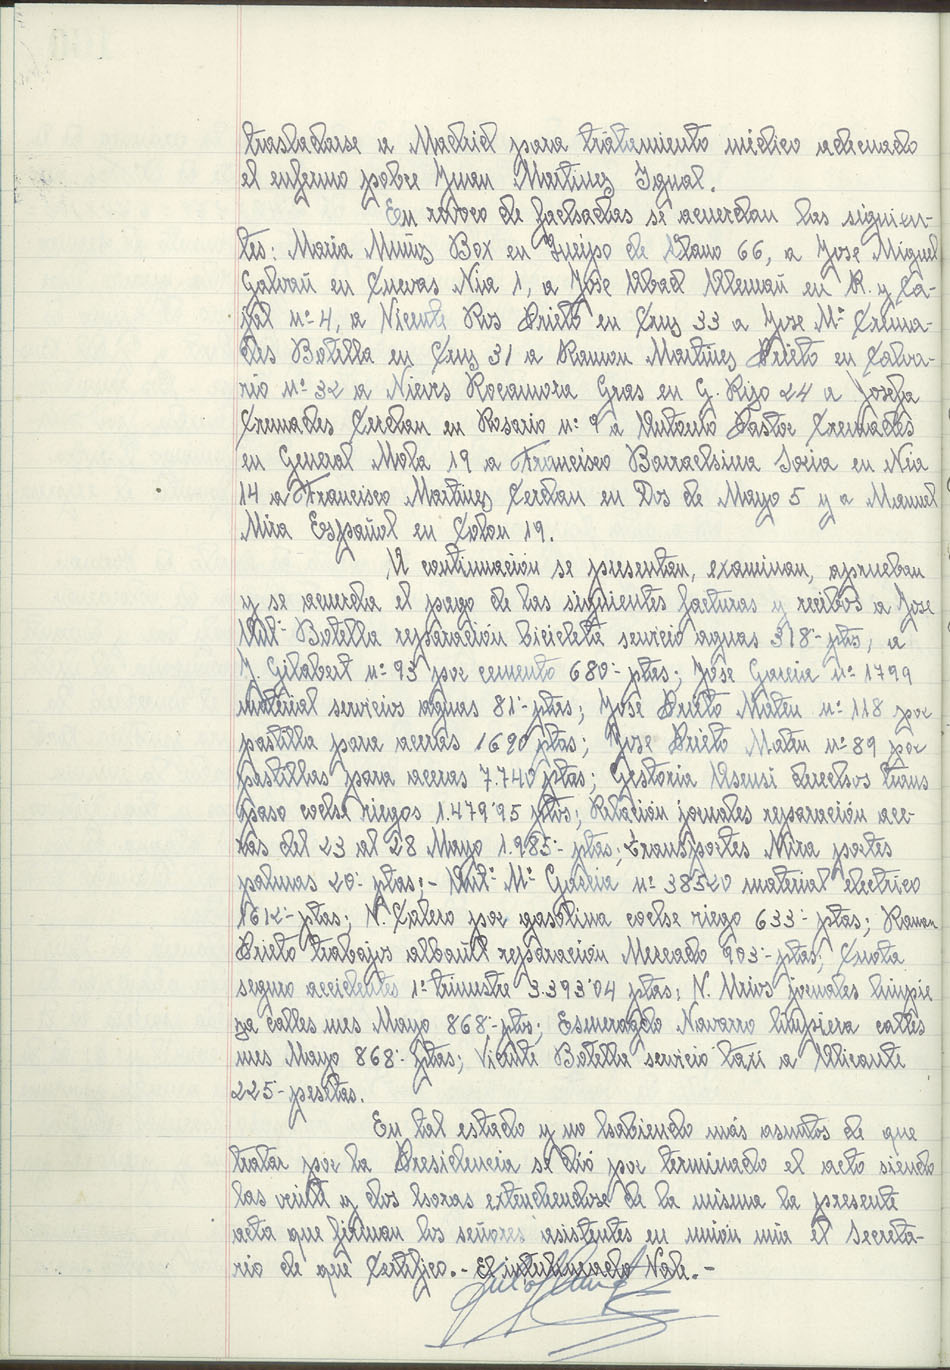 trasladarse a Madrid para tratamiento médico adecuado
el enfermo pobre Juan Martinez Igual.
En rodeo de fachadas se acuerdan las siguien-
tes: Maria Muñoz Box en Queipo de Llano 66, a Jose Miguel
Galvañ en Cuevas Nia 1, a Jose Abad Alemañ en R. y Ca-
jal nº 4, a Vicente Ros Prieto en Cruz 33 a Jose Mª Crema-
des Botella en Cruz 31 a Ramon Martinez Prieto en Calva-
rio nº 32 a Nieves Rocamora Gras en G. Rizo 24 a Josefa
Cremades Cerdan en Rosario nº 9 a Antonio Pastor Cremades
en General Mola 19 a Francisco Barrachina Soria en Nia
14 a Francisco Martinez Cerdan en Dos de Mayo 5 y a Manuel
Mira Español en Colon 19.
A continuación se presentan, examinan, aprueban
y se acuerda el pago de las siguientes facturas y recibos a Jose
Antº Botella reparación bicicleta servicio aguas 318'- ptas; a
J. Gilabert nº 93 por cemento 680'- ptas; Jose Garcia nº 1799
material servicios aguas 81'- ptas; Jose Prieto Mateu nº 118 por
pastilla para aceras 1690 ptas; Jose Prieto Mateu nº 89 por
pastillas para aceras 7.740 ptas; Gestoria Asensi derechos trans
paso coche riegos 1.479'95 ptas; Relación jornales reparación ace-
ras del 23 al 28 Mayo 1.985'- ptas; transportes Mira portes
palmas 20'- ptas; - Antº Mª Garcia nº 38520 material electrico
1612'- ptas; N. Calero por gasolina coche riego 633'- ptas; Ramon
Prieto trabajos albañil reparación Mercado 903'- ptas; Cuota
seguro accidentes 1º trimestre 3.393'04 ptas; N. Mrivs jornales limpie
za calles mes Mayo 868'- ptas; Esmeragdo Navarro limpiera calles
mes Mayo 868'- ptas; Vicente Botella servicio taxi a Alicante
225'- pesetas.
En tal estado y no habiendo más asuntos de que
tratar por la Presidencia se dió por terminado el acto siendo
las veinte y dos horas extendiendose de la misma la presente
acta que firman los señores asistentes en unión mia el Secreta-
rio de que Certifico.- El interlineado Vale.-